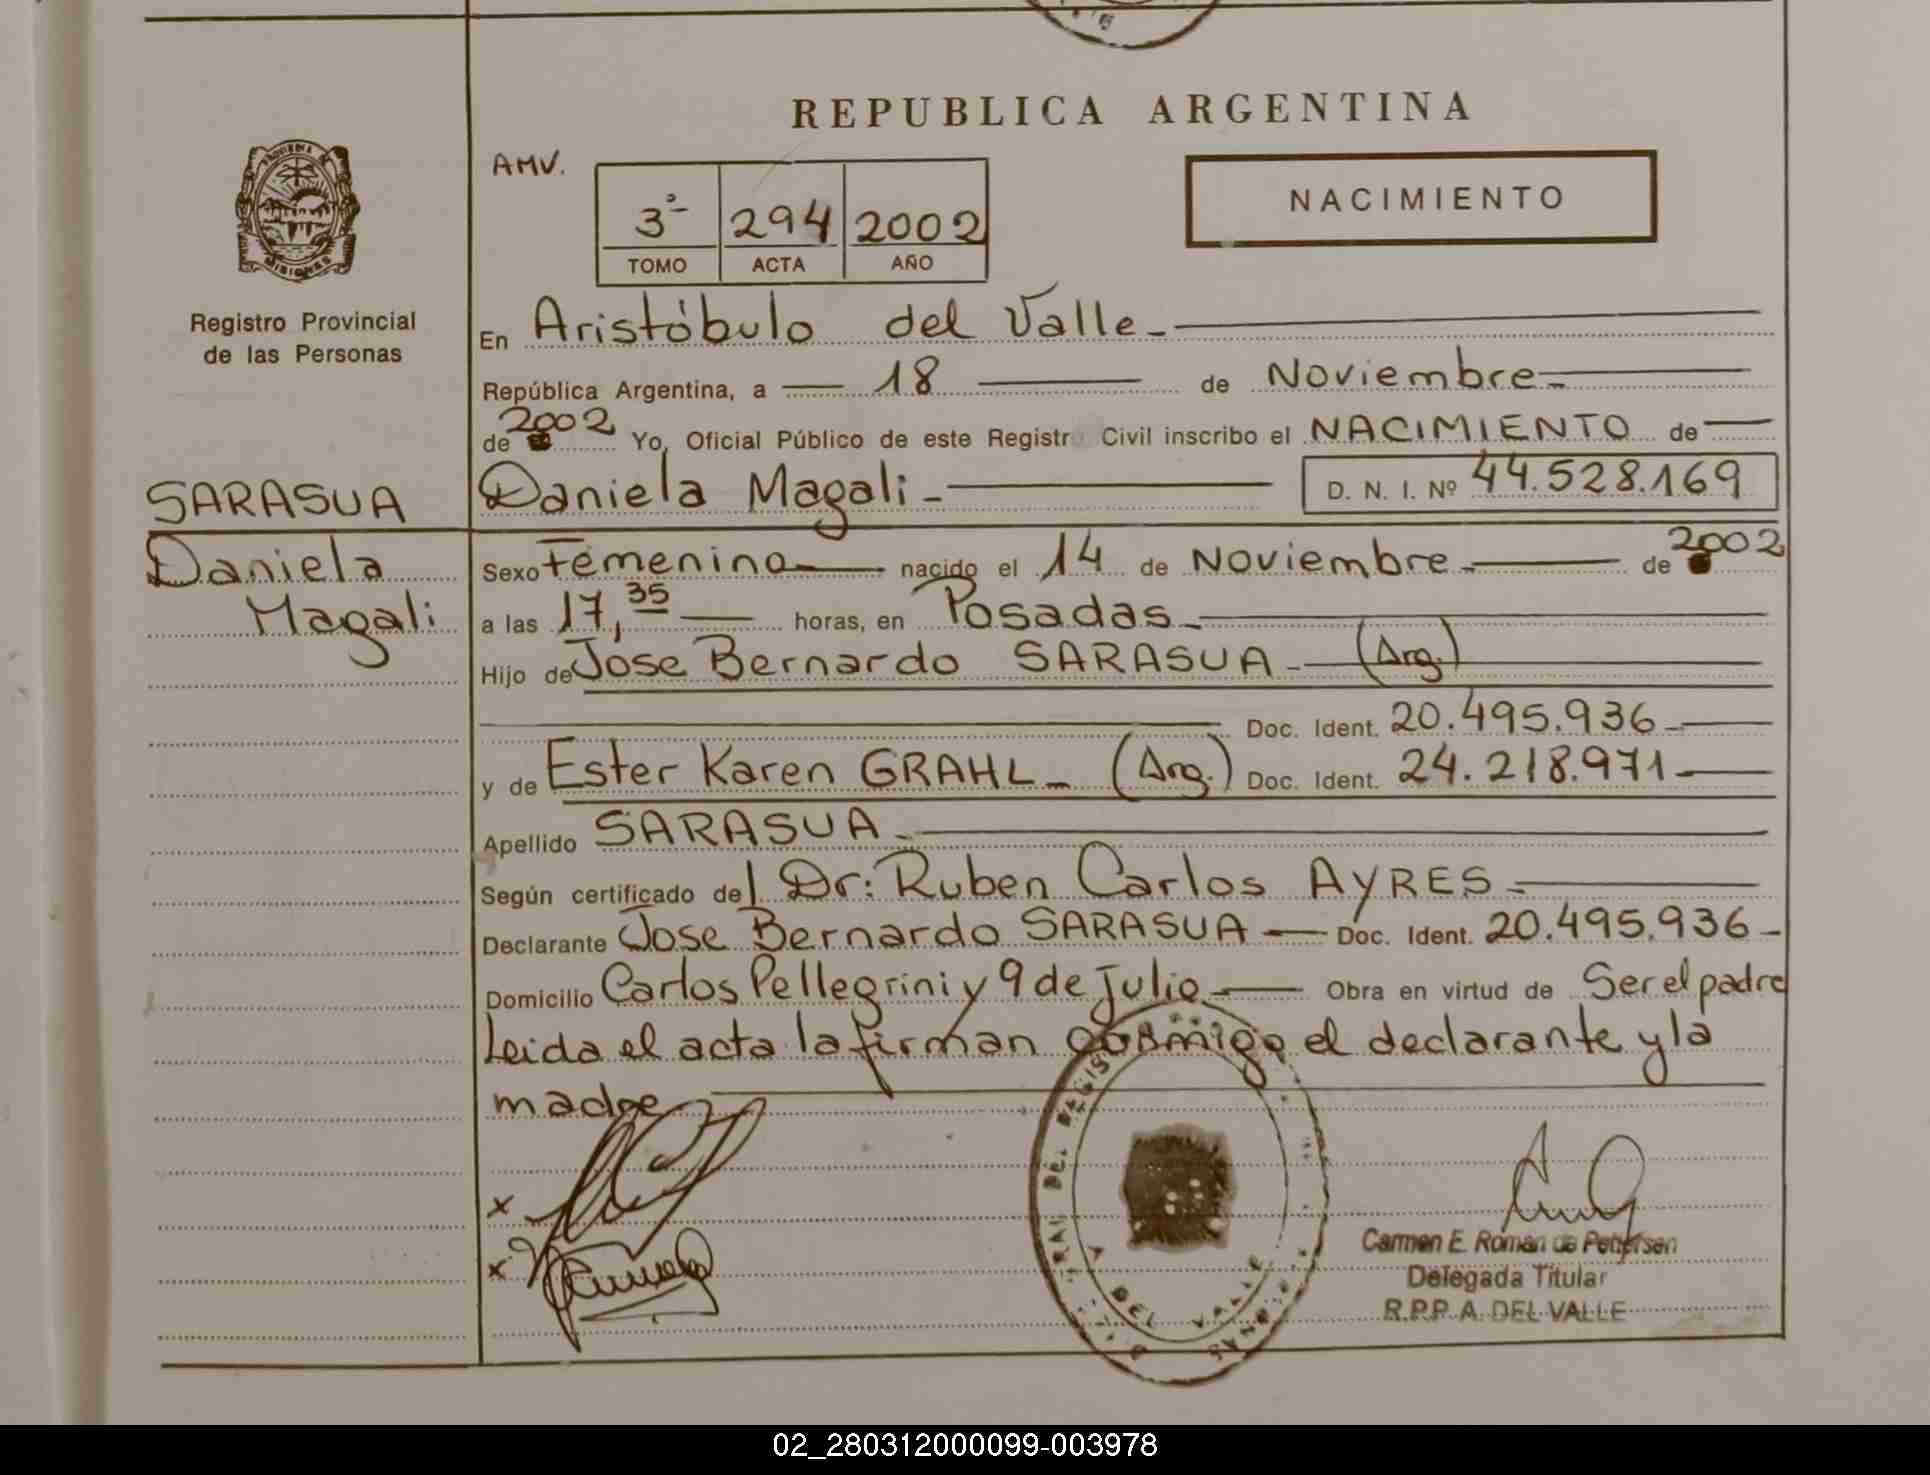 REPUBLICA ARGENTINA
AMV.
3º 294 2002
TOMO ACTA AÑO
NACIMIENTO
MISIONES
Registro Provincial
de las Personas
En Aristóbulo del Valle
República Argentina, a 18 de Noviembre
de 2002 Yo, Oficial Público de este Registro Civil inscribo el NACIMIENTO de
SARASUA
Daniela Magali
Daniela Magali D. N. I. Nº 44.528.169
Sexo Femenino nacido el 14 de Noviembre de 2002
a las 17,35 horas, en Posadas
Hijo de Jose Bernardo SARASUA (Arg.)
Doc. Ident. 20.495.936
y de Ester Karen GRAHL (Arg.) Doc. Ident. 24.218.971
Apellido SARASUA
Según certificado del Dr: Ruben Carlos AYRES
Declarante Jose Bernardo SARASUA Doc. Ident. 20.495.936
Domicilio Carlos Pellegrini y 9 de Julio Obra en virtud de Ser el padre
Leida el acta la firman conmigo el declarante y la
madre
x
x
DEL VALLE
Carmen E. Roman de
Delegada Titular
R.P.P. A. DEL VALLE
02_280312000099-003978